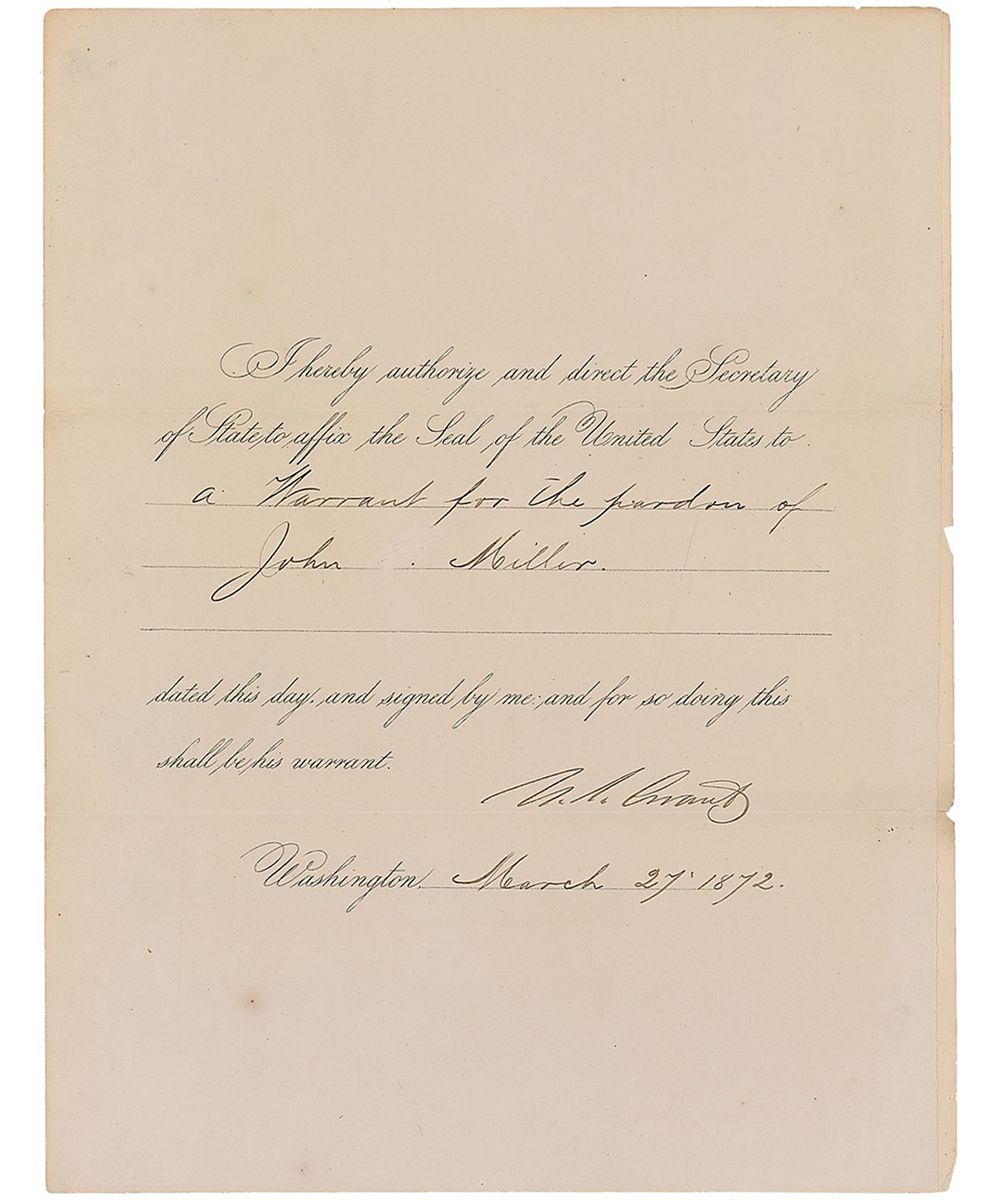 I hereby authorize and direct the Secretary
of State to affix the Seal of the United States to
a Warrant for the pardon of
John Miller.
dated this day, and signed by me: and for so doing this
shall be his warrant.
U. S. Grant
Washington, March 27' 1872.